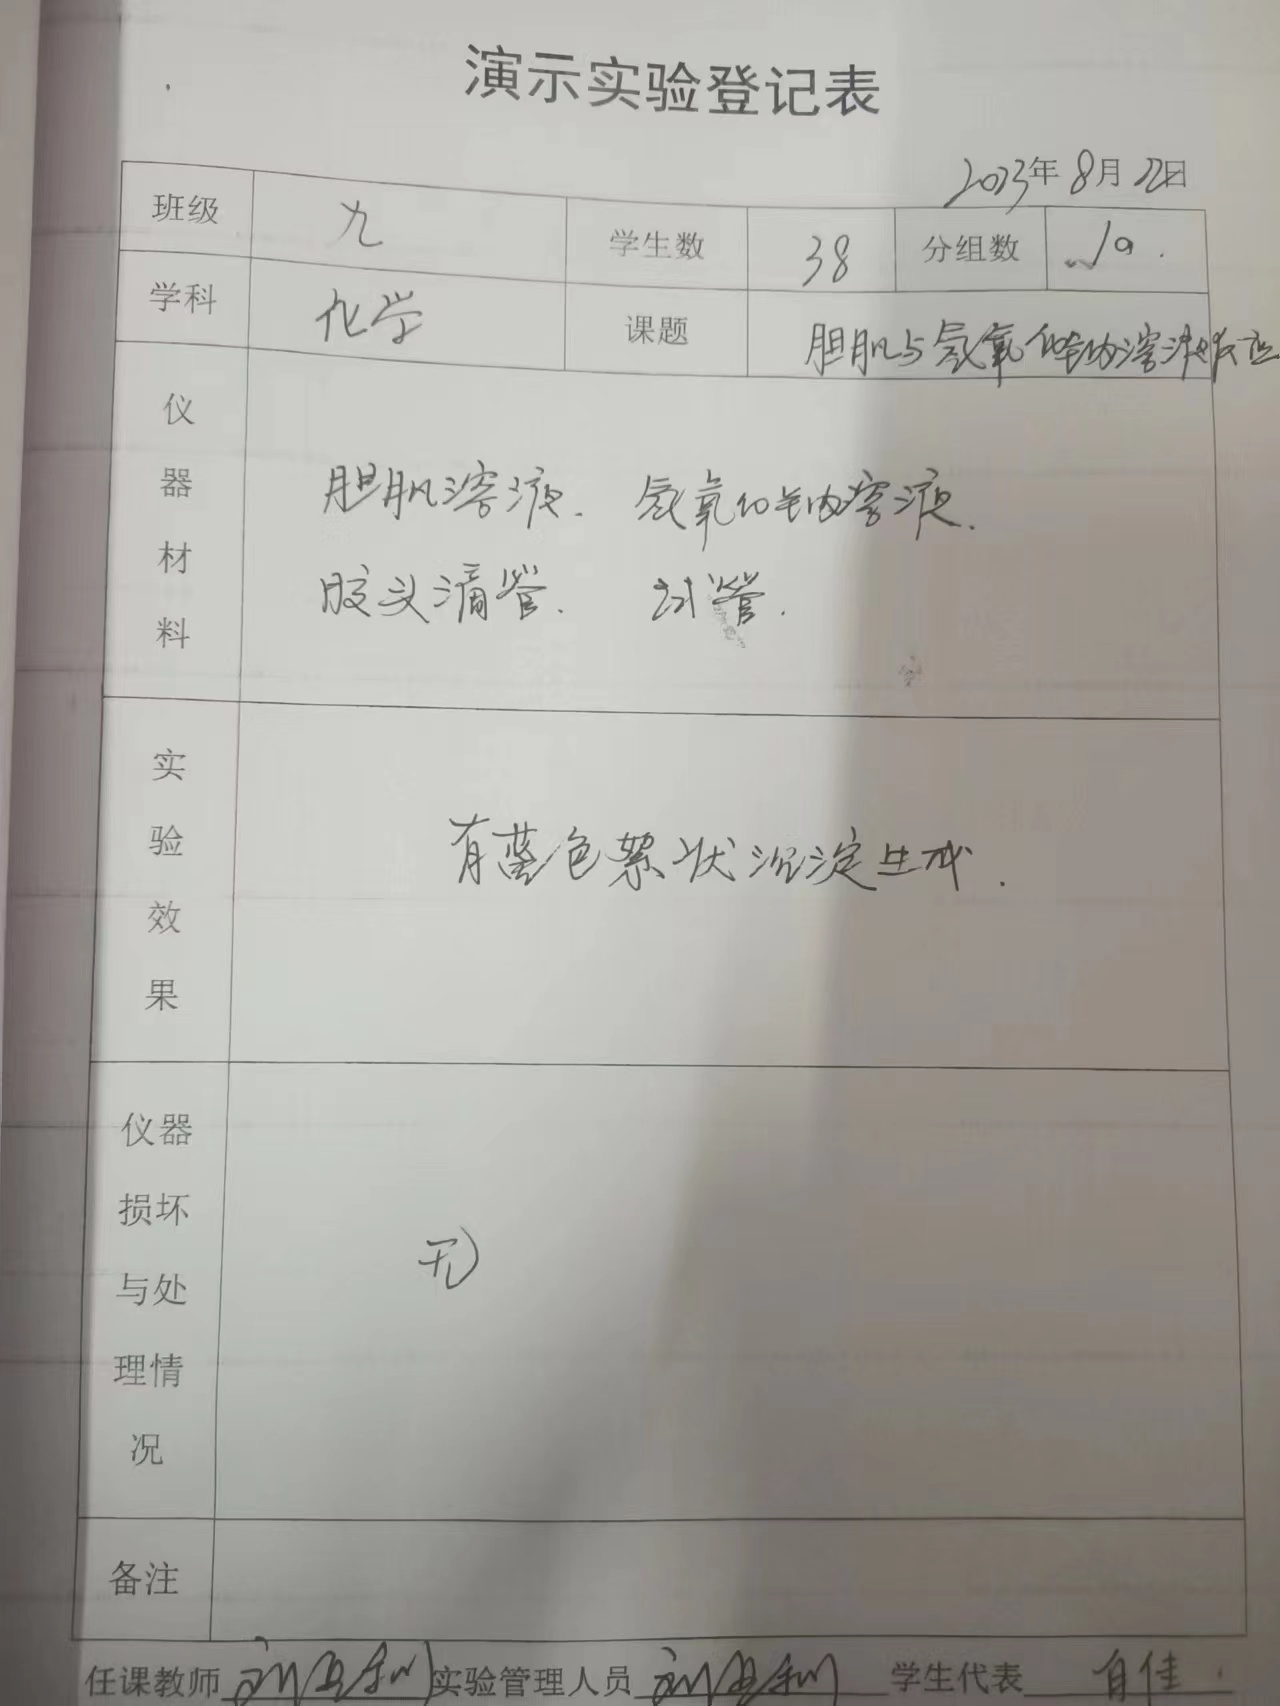 演示实验登记表
2023年8月22日
班级 九 学生数 38 分组数 10.
学科 化学 课题 胆矾与氢氧化钠溶液反应
仪器材料
胆矾溶液. 氢氧化钠溶液.
胶头滴管. 试管.
实验效果
有蓝色絮状沉淀生成.
仪器损坏与处理情况
无
备注
任课教师 实验管理人员 学生代表